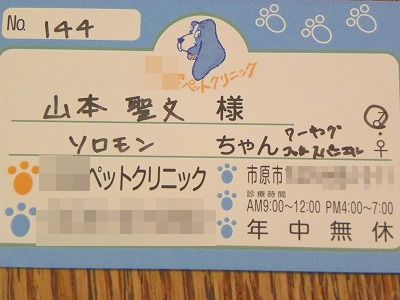 No. 144
ペットクリニック
山本 聖文 様
ソロモン ちゃん ワーキング
コッカースパニエル
♂
♀
ペットクリニック
市原市
診療時間
AM9:00~12:00 PM4:00~7:00
年中無休